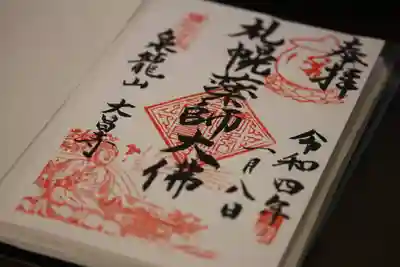 奉拝
令和四年
八月八日
札幌薬師大佛
泉龍山
大昌寺